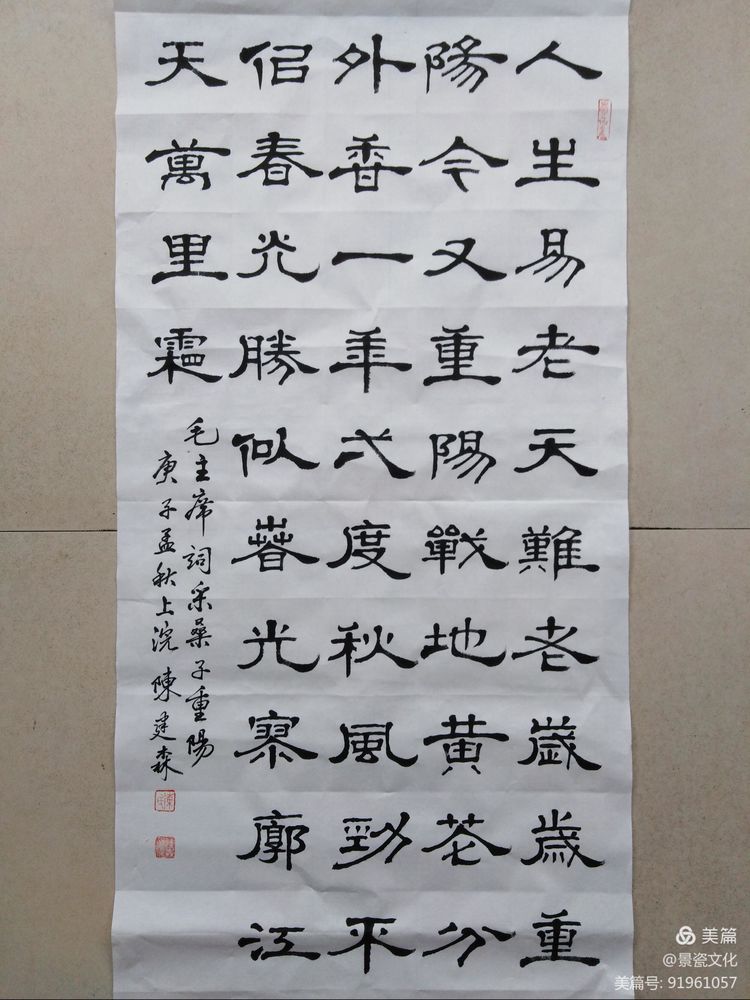 人生易老天難老歲歲重
陽今又重陽戰地黄花分
外香一年弌度秋風勁不
佀春光勝似春光寥廓江
天萬里霜
毛主席詞采桑子重陽
庚子孟秋上浣陳建森
美篇
@景瓷文化
美篇号: 91961057